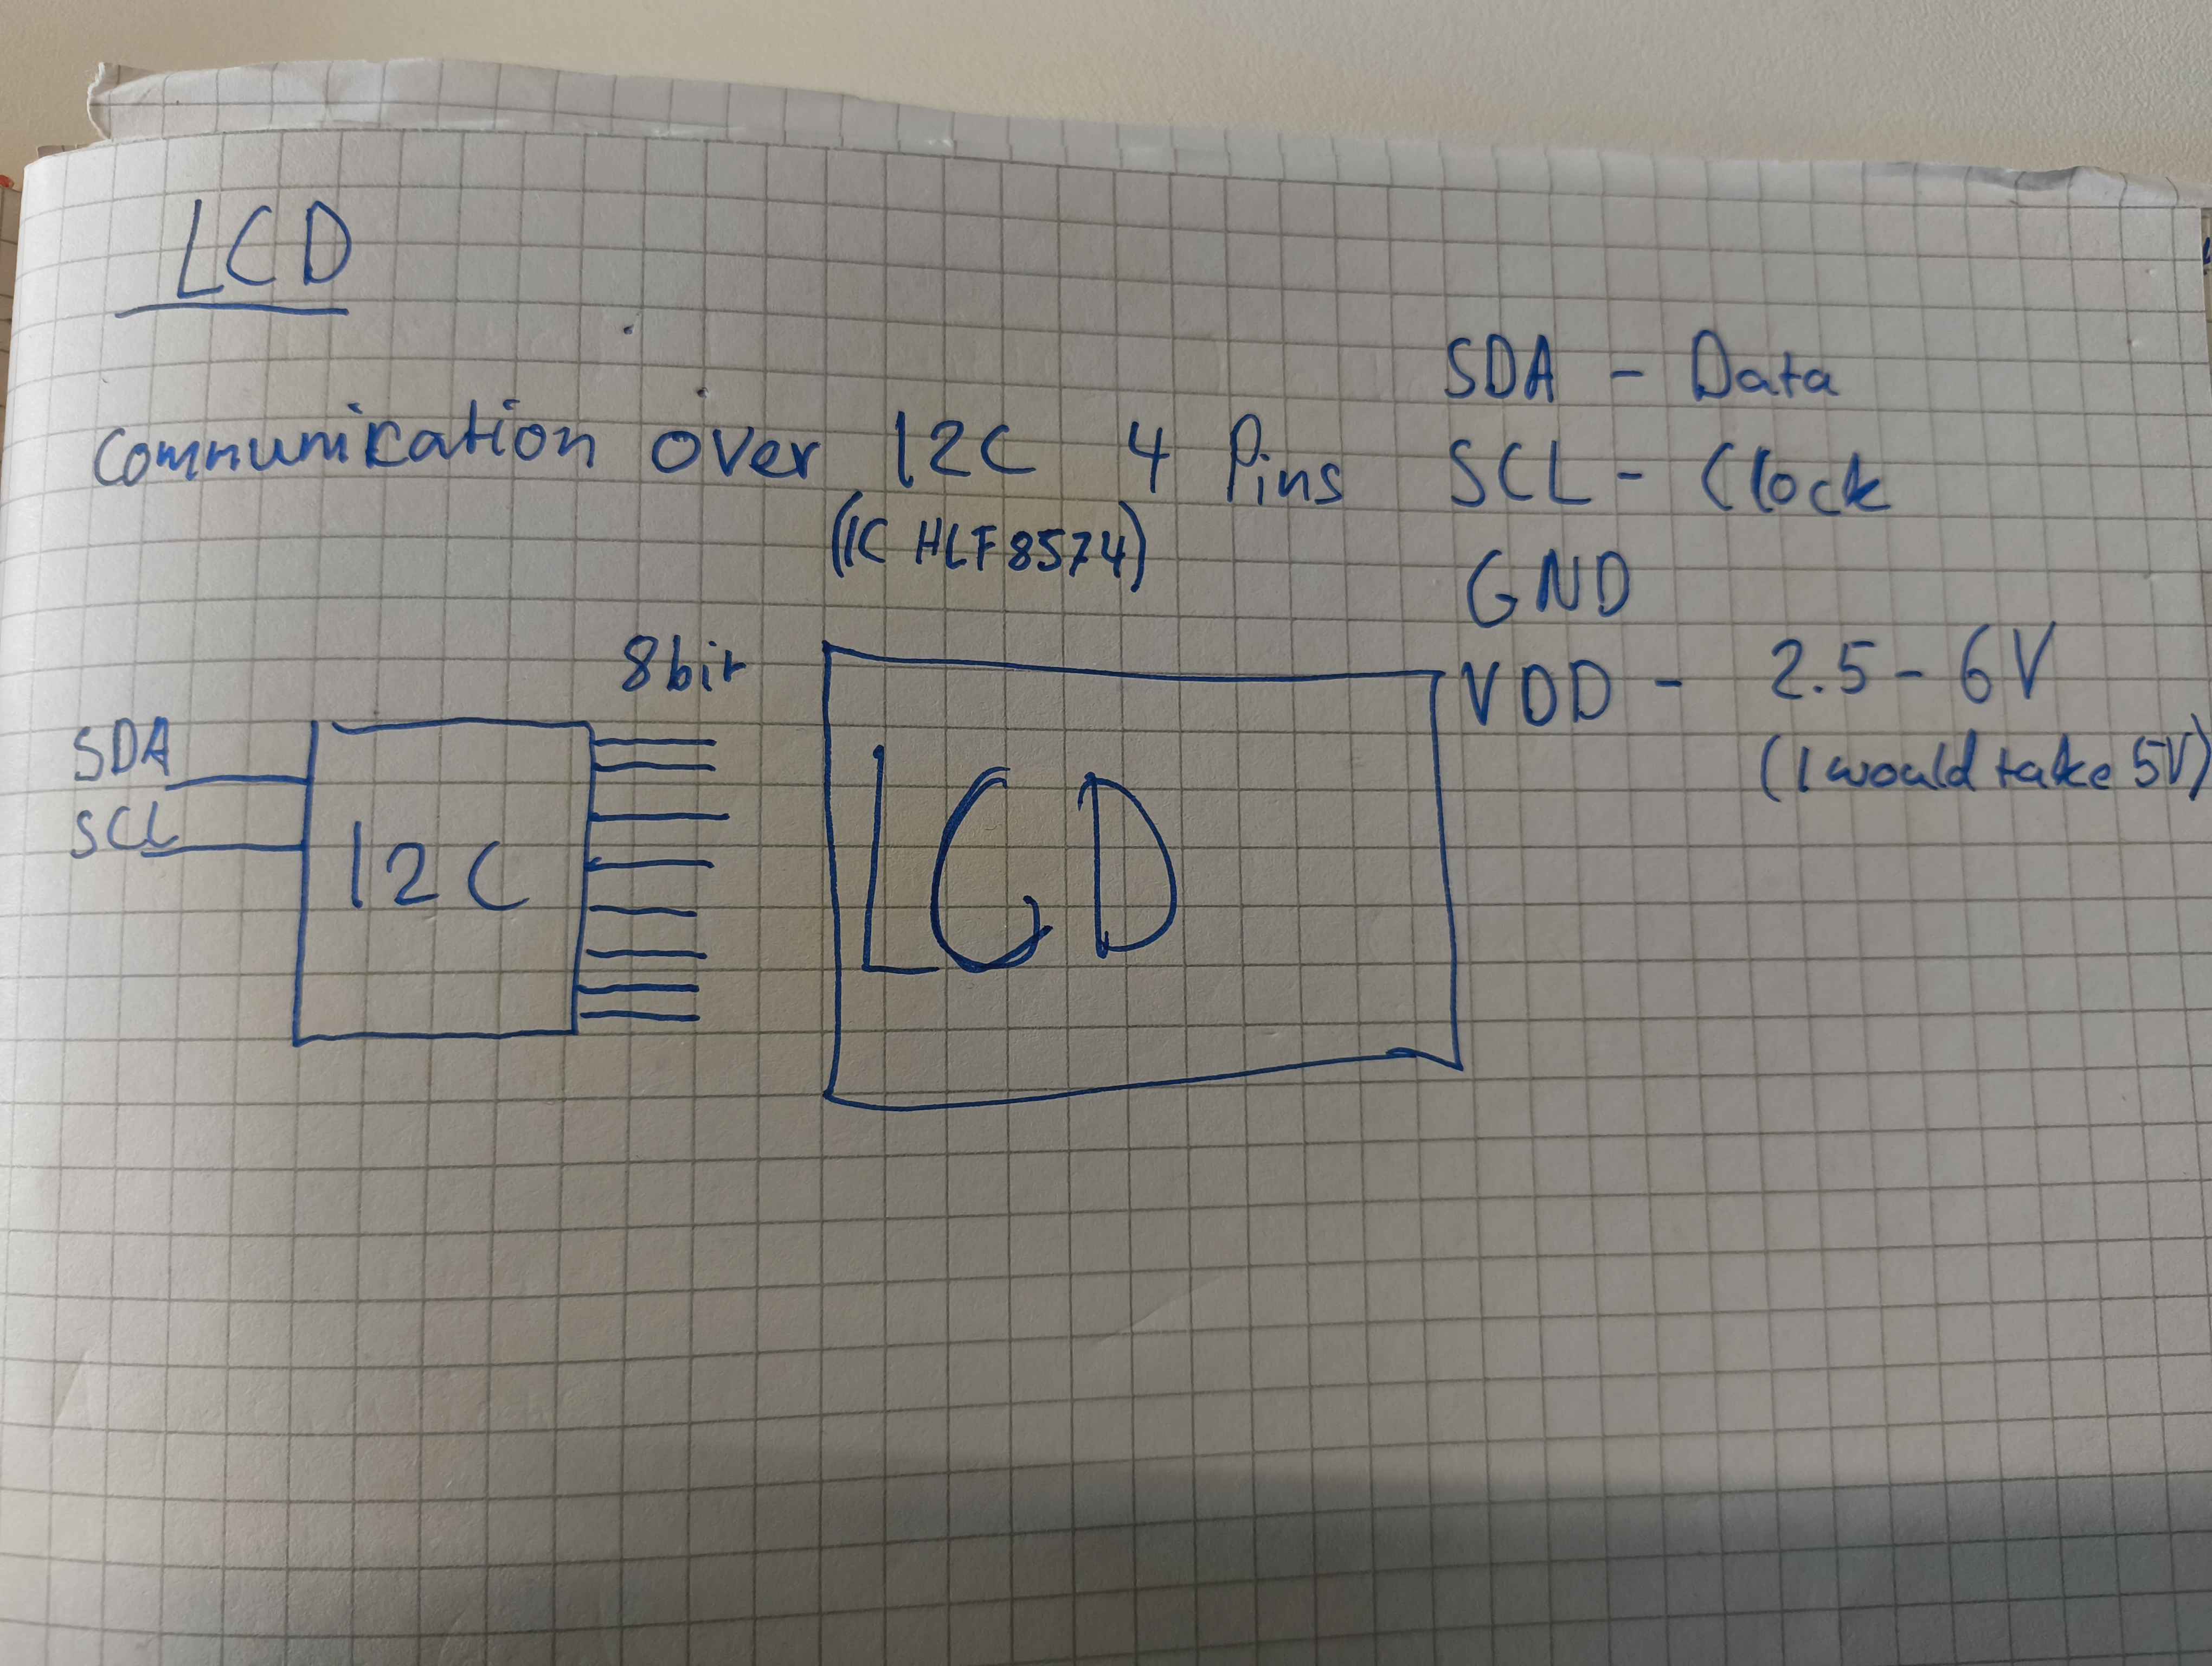 LCD
Communication over I2C 4 Pins
(IC HLF8574)
SDA - Data
SCL - Clock
GND
VDD - 2.5 - 6V
(I would take 5V)
8bit
SDA
SCL
I2C
LCD